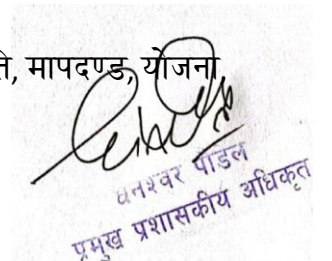 मापदण्ड, योजना
धनश्वर पौडेल
प्रमुख प्रशासकीय अधिकृत